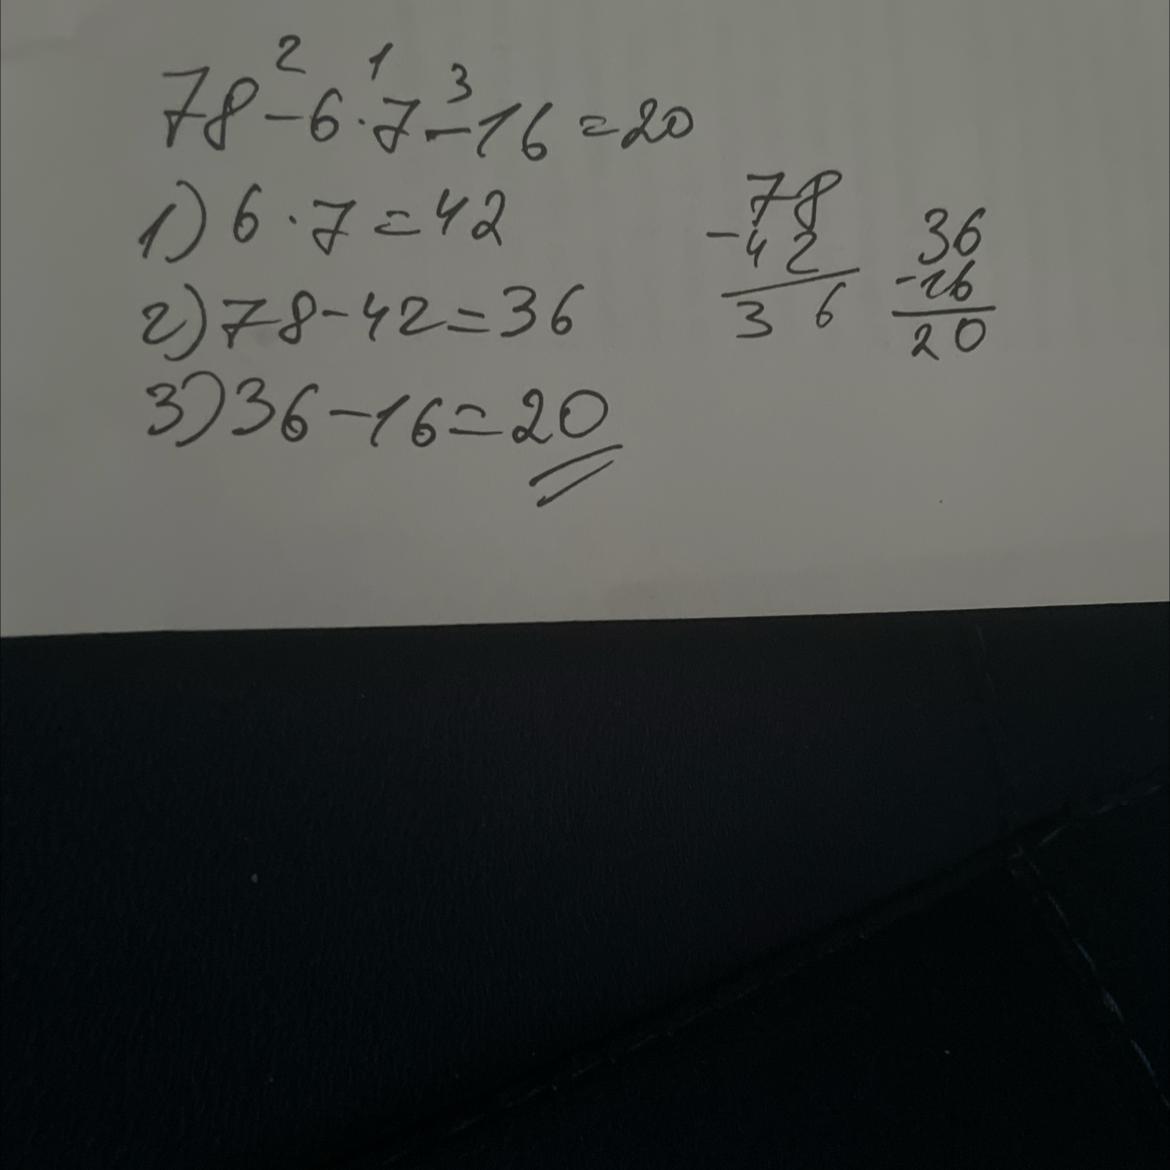 78-6·7-16=20
2 1 3
1) 6·7=42
2) 78-42=36
3) 36-16=20
78
-42
36
36
-16
20